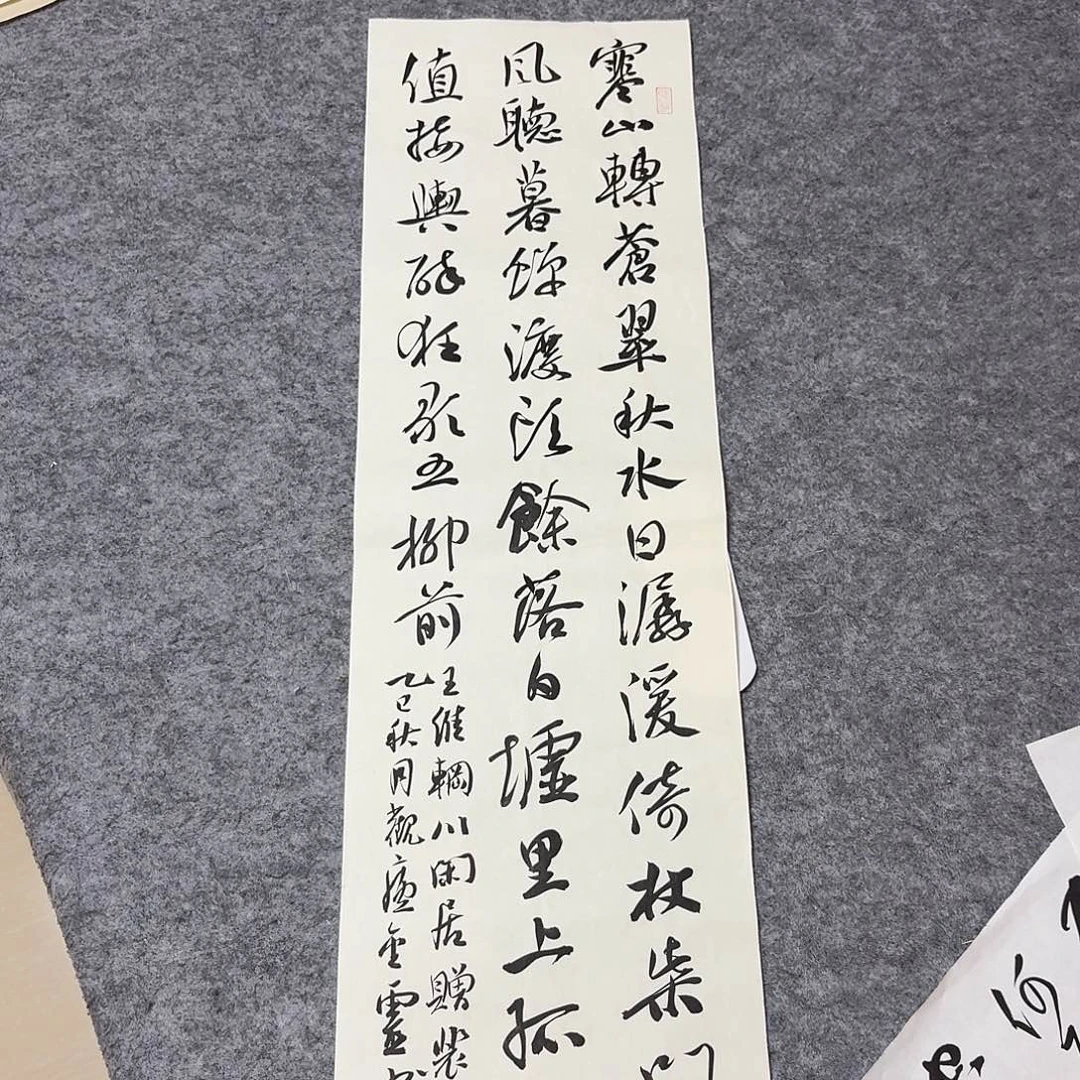 寒山轉蒼翠秋水日潺湲倚杖柴門
風聽暮蟬渡頭餘落白墟里上孤
值接輿醉狂歌五柳前
王維輞川閑居贈裴
乙巳秋月觀金靈